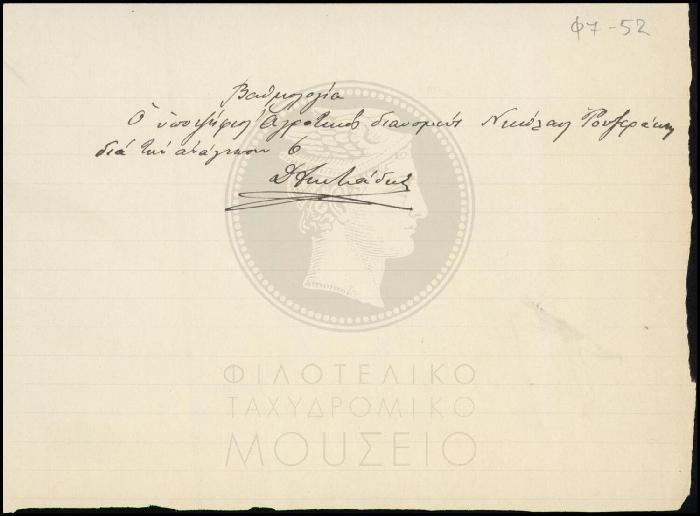 Φ7-52
Βαθμολογία
Ο υποψήφιος Αγροτικός διανομεύς Νικόλαος
διά την ανάγνωσιν 6
ΦΙΛΟΤΕΛΙΚΟ
ΤΑΧΥΔΡΟΜΙΚΟ
ΜΟΥΣΕΙΟ